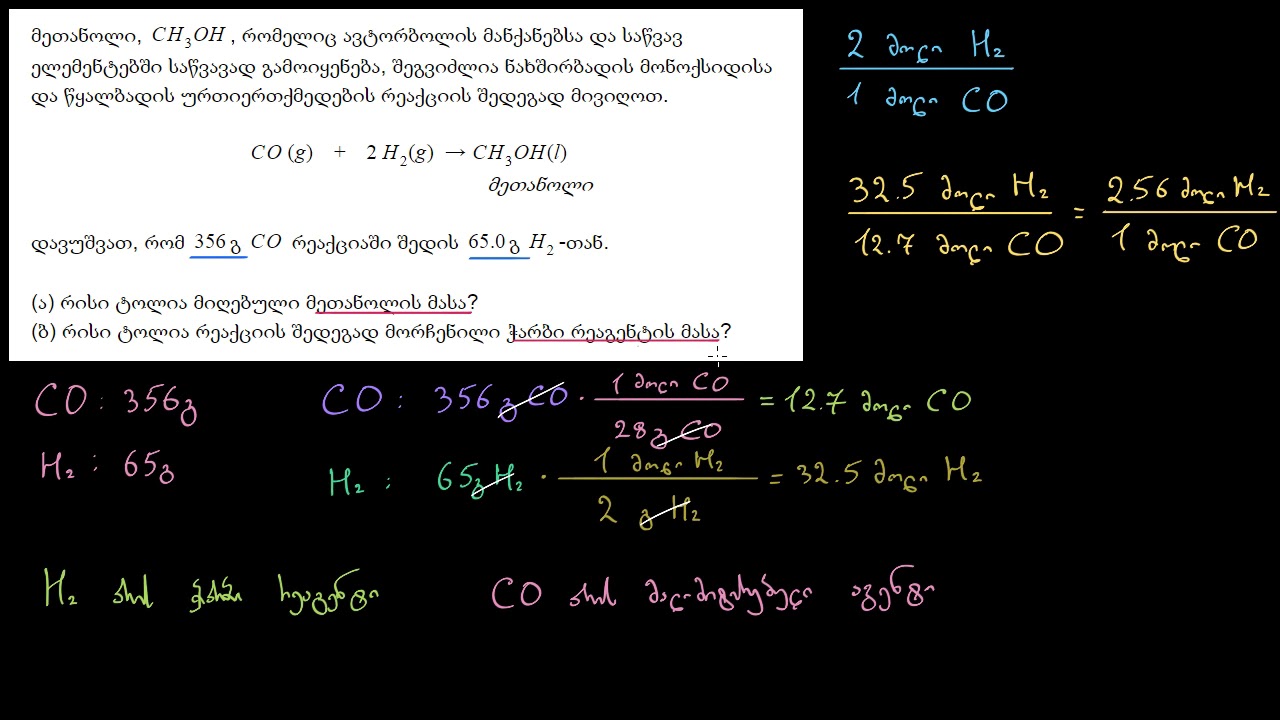 მეთანოლი, CH₃OH , რომელიც ავტორბოლის მანქანებსა და საწვავ
ელემენტებში საწვავად გამოიყენება, შეგვიძლია ნახშირბადის მონოქსიდისა
და წყალბადის ურთიერთქმედების რეაქციის შედეგად მივიღოთ.
CO (g) + 2 H₂(g) → CH₃OH(l)
მეთანოლი
დავუშვათ, რომ 356 გ CO რეაქციაში შედის 65.0 გ H₂ -თან.
(ა) რისი ტოლია მიღებული მეთანოლის მასა?
(ბ) რისი ტოლია რეაქციის შედეგად მორჩენილი ჭარბი რეაგენტის მასა?
2 მოლი H₂
1 მოლი CO
32.5 მოლი H₂ = 2.56 მოლი H₂
12.7 მოლი CO 1 მოლი CO
CO : 356გ
H₂ : 65გ
CO : 356 გ CO · 1 მოლი CO = 12.7 მოლი CO
28 გ CO
H₂ : 65გ H₂ · 1 მოლი H₂ = 32.5 მოლი H₂
2 გ H₂
H₂ არის ჭარბი რეაგენტი
CO არის მალიმიტირებელი აგენტი